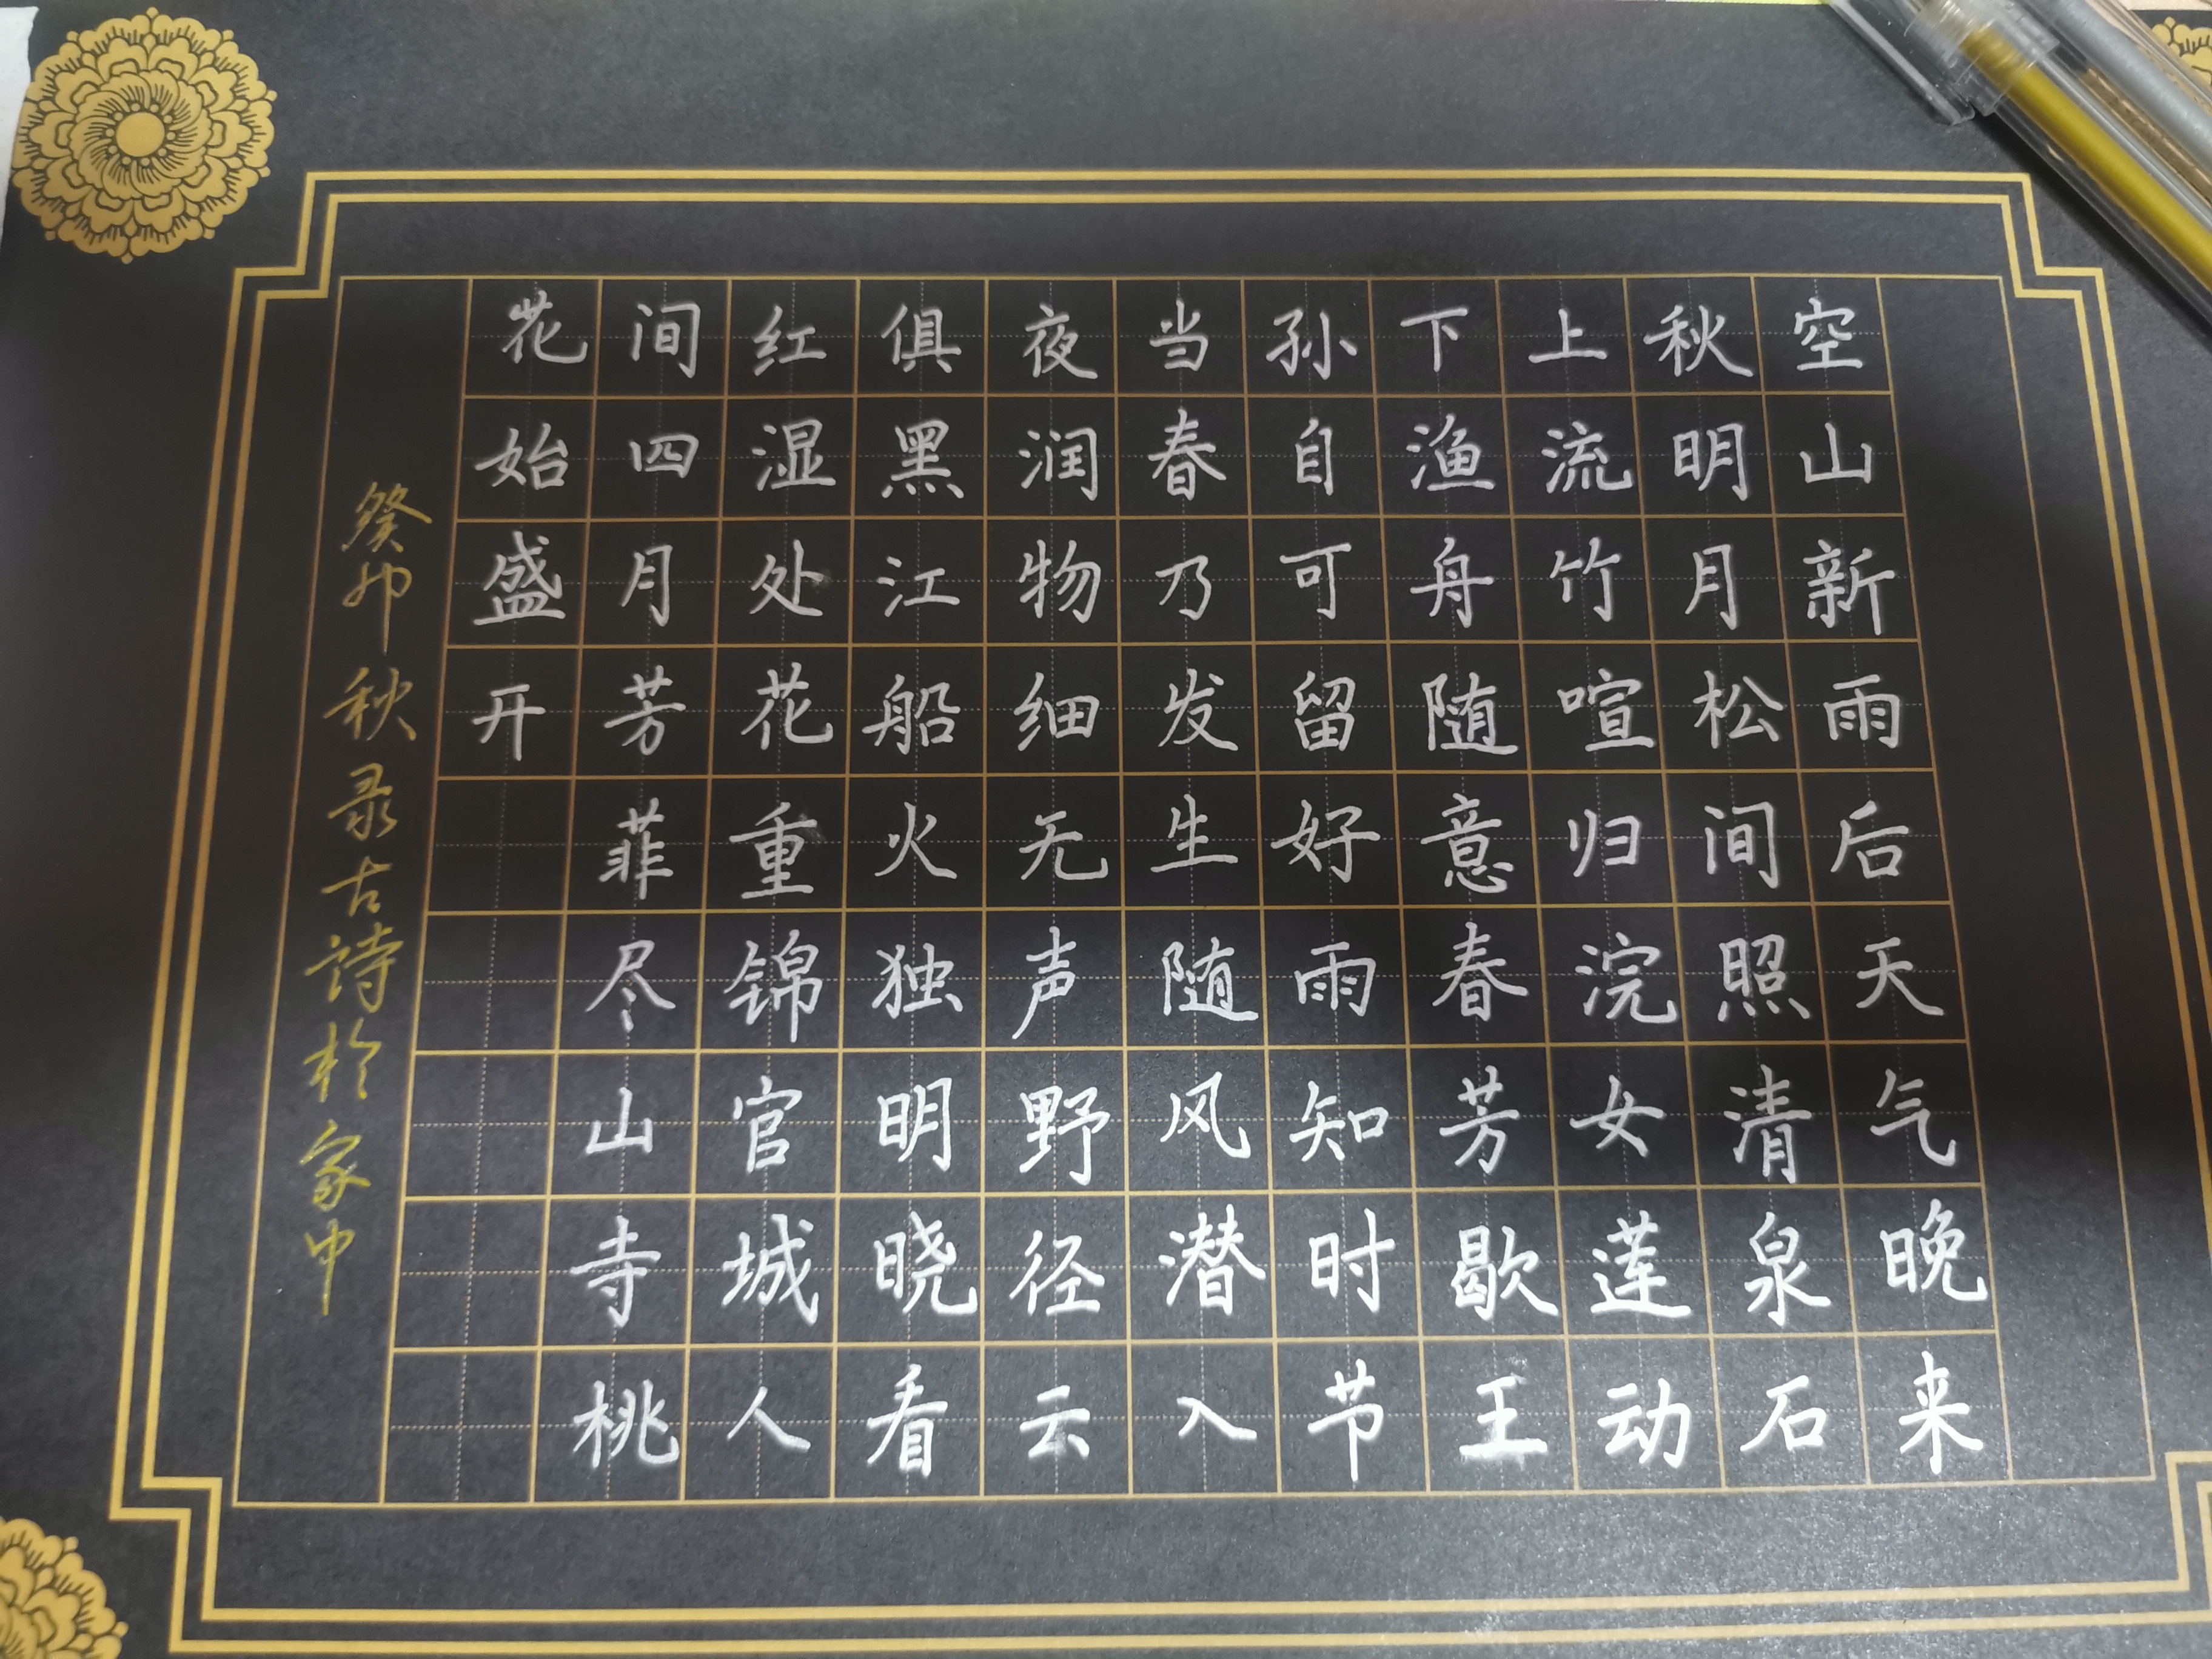 空山新雨后天气晚来
秋明月松间照清泉石
上流竹喧归浣女莲动
下渔舟随意春芳歇王
孙自可留好雨知时节
当春乃发生随风潜入
夜润物细无声野径云
俱黑江船火独明晓看
红湿处花重锦官城人
间四月芳菲尽山寺桃
花始盛开
癸卯秋录古詩於家中